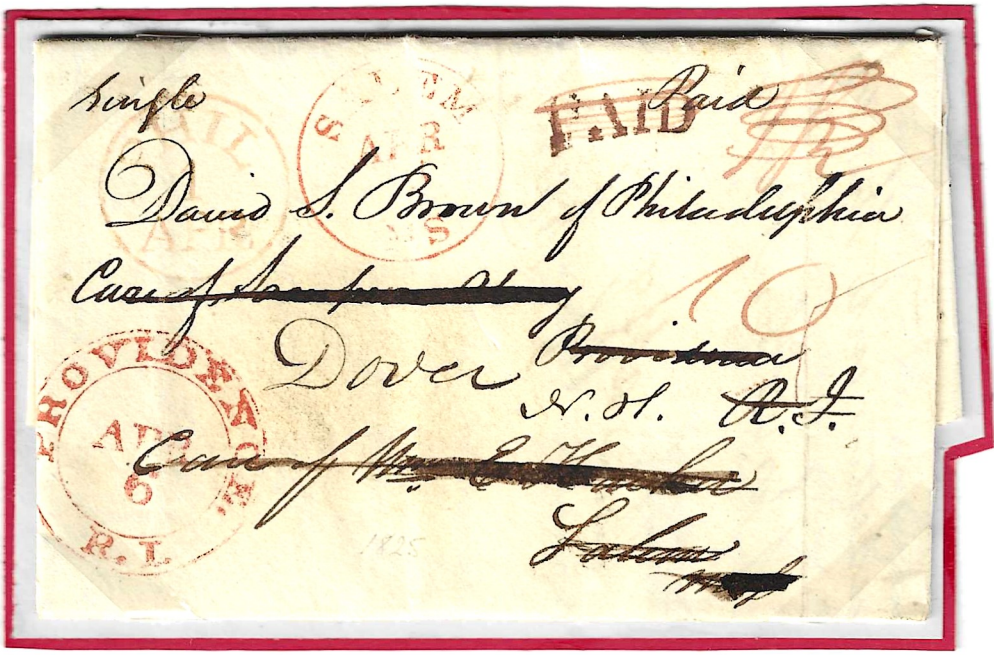 Single Paid
PAID
SALEM
APR
MS
MAIL
APR
David S. Brown of Philadelphia
Care of
10
Dover Providence
N. H. R. I.
PROVIDENCE
APR
6
R. I.
Care of Wm. E Hacker
Salem
Mass
1825